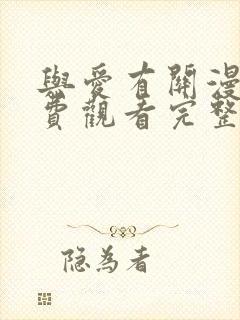 與愛有關漫
費觀看完整
隐为者